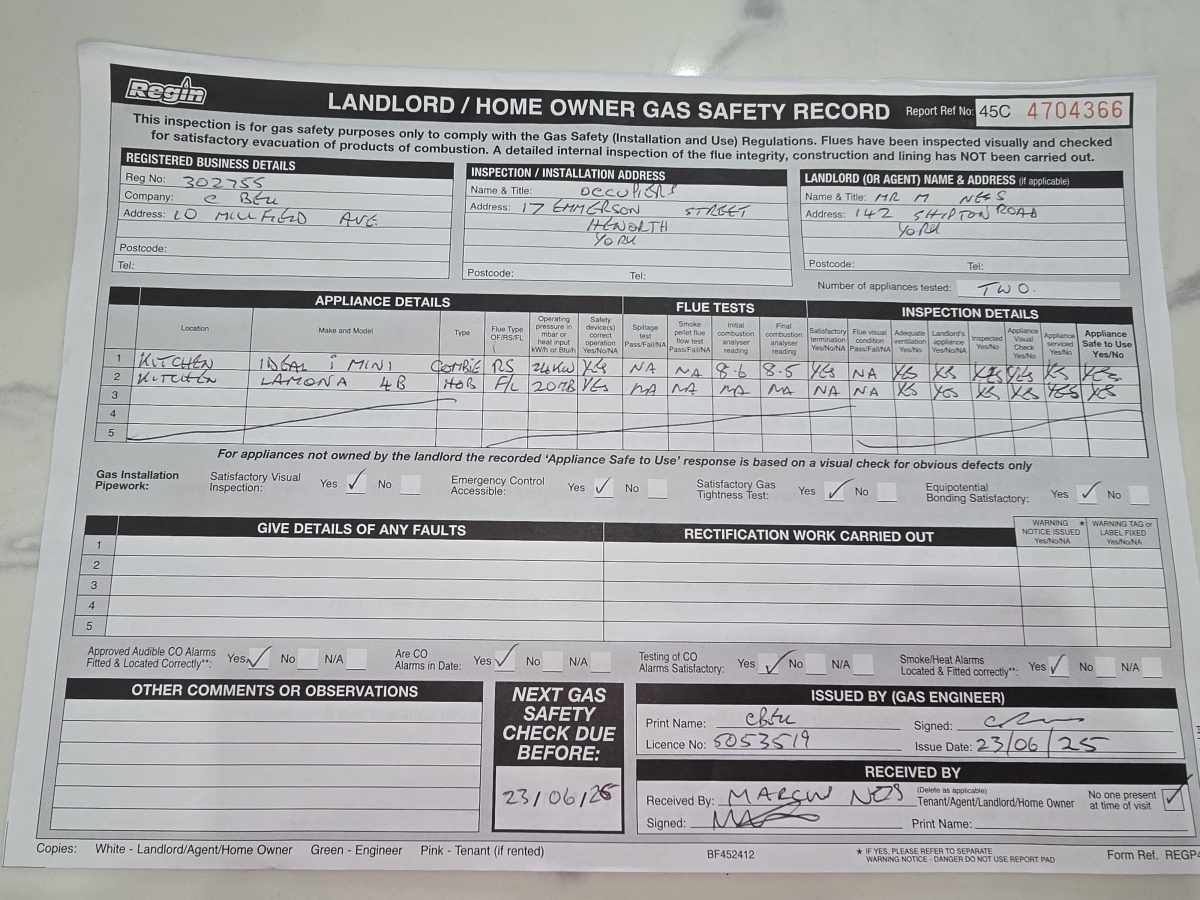 Regin
LANDLORD / HOME OWNER GAS SAFETY RECORD
Report Ref No: 45C 4704366
This inspection is for gas safety purposes only to comply with the Gas Safety (Installation and Use) Regulations. Flues have been inspected visually and checked
for satisfactory evacuation of products of combustion. A detailed internal inspection of the flue integrity, construction and lining has NOT been carried out.
REGISTERED BUSINESS DETAILS
Reg No: 302755
Company: C BELL
Address: 10 MILLFIELD AVE
Postcode:
Tel:
INSPECTION / INSTALLATION ADDRESS
Name & Title: OCCUPIERS
Address: 17 EMMERSON STREET
HEWORTH
YORK
Postcode: Tel:
LANDLORD (OR AGENT) NAME & ADDRESS (if applicable)
Name & Title: MR M NESS
Address: 142 SHIPTON ROAD
YORK
Postcode: Tel:
Number of appliances tested: TWO.
APPLIANCE DETAILS FLUE TESTS INSPECTION DETAILS
Location
Make and Model
Type
Flue Type OF/RS/FL
Operating pressure in mbar or heat input kW/h or Btu/h
Safety device(s) correct operation Yes/No/NA
Spillage test Pass/Fail/NA
Smoke pellet flue flow test Pass/Fail/NA
Initial combustion analyser reading
Final combustion analyser reading
Satisfactory termination Yes/No/NA
Flue visual condition Pass/Fail/NA
Adequate ventilation Yes/No
Landlord's appliance Yes/No/NA
Inspected Yes/No
Appliance Visual Check Yes/No
Appliance serviced Yes/No
Appliance Safe to Use Yes/No
1 KITCHEN IDEAL i MINI COMBIE RS 24KW YES NA NA 8.6 8.5 YES NA YES YES YES YES YES YES.
2 KITCHEN LAMONA 4B HOB F/L 20MB YES NA NA NA NA NA NA YES YES YES YES YES YES
3
4
5
For appliances not owned by the landlord the recorded 'Appliance Safe to Use' response is based on a visual check for obvious defects only
Gas Installation Pipework: Satisfactory Visual Inspection: Yes ✓ No Emergency Control Accessible: Yes ✓ No Satisfactory Gas Tightness Test: Yes ✓ No Equipotential Bonding Satisfactory: Yes ✓ No
GIVE DETAILS OF ANY FAULTS RECTIFICATION WORK CARRIED OUT WARNING ★ NOTICE ISSUED Yes/No/NA WARNING TAG or LABEL FIXED Yes/No/NA
1
2
3
4
5
Approved Audible CO Alarms Fitted & Located Correctly**: Yes ✓ No N/A Are CO Alarms in Date: Yes ✓ No N/A Testing of CO Alarms Satisfactory: Yes ✓ No N/A Smoke/Heat Alarms Located & Fitted correctly**: Yes ✓ No N/A
OTHER COMMENTS OR OBSERVATIONS
NEXT GAS
SAFETY
CHECK DUE
BEFORE:
23/06/26
ISSUED BY (GAS ENGINEER)
Print Name: C BELL Signed:
Licence No: 5053519 Issue Date: 23/06/25
RECEIVED BY
Received By: MARCUS NESS (Delete as applicable) Tenant/Agent/Landlord/Home Owner No one present at time of visit ✓
Signed: Print Name:
Copies: White - Landlord/Agent/Home Owner Green - Engineer Pink - Tenant (if rented)
BF452412
★ IF YES, PLEASE REFER TO SEPARATE
WARNING NOTICE - DANGER DO NOT USE REPORT PAD
Form Ref. REGP4